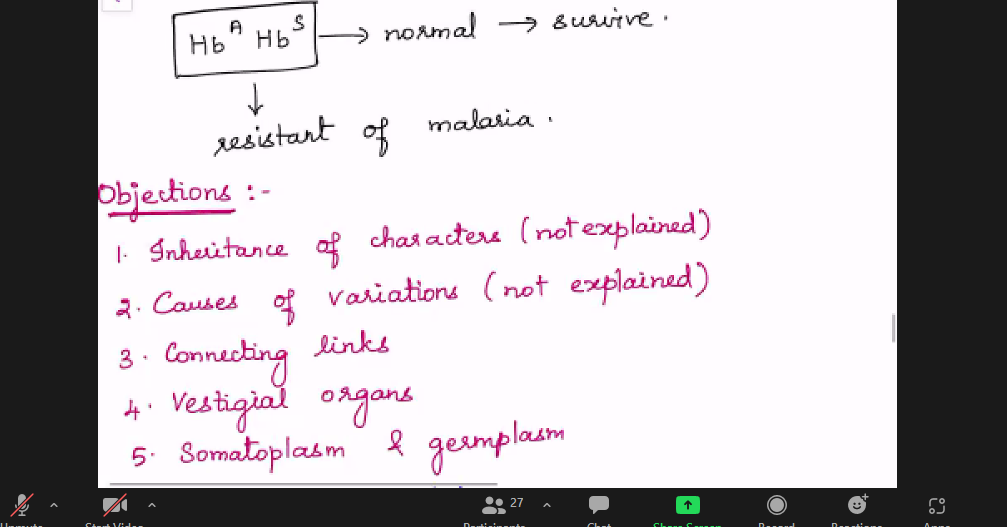 Hb^A Hb^S → normal → survive.
↓
resistant of malaria.
Objections :-
1. Inheritance of characters (not explained)
2. Causes of variations (not explained)
3. Connecting links
4. Vestigial organs
5. Somatoplasm & germplasm
27
Unmute Start Video Participants Chat Share Screen Record Reactions Apps